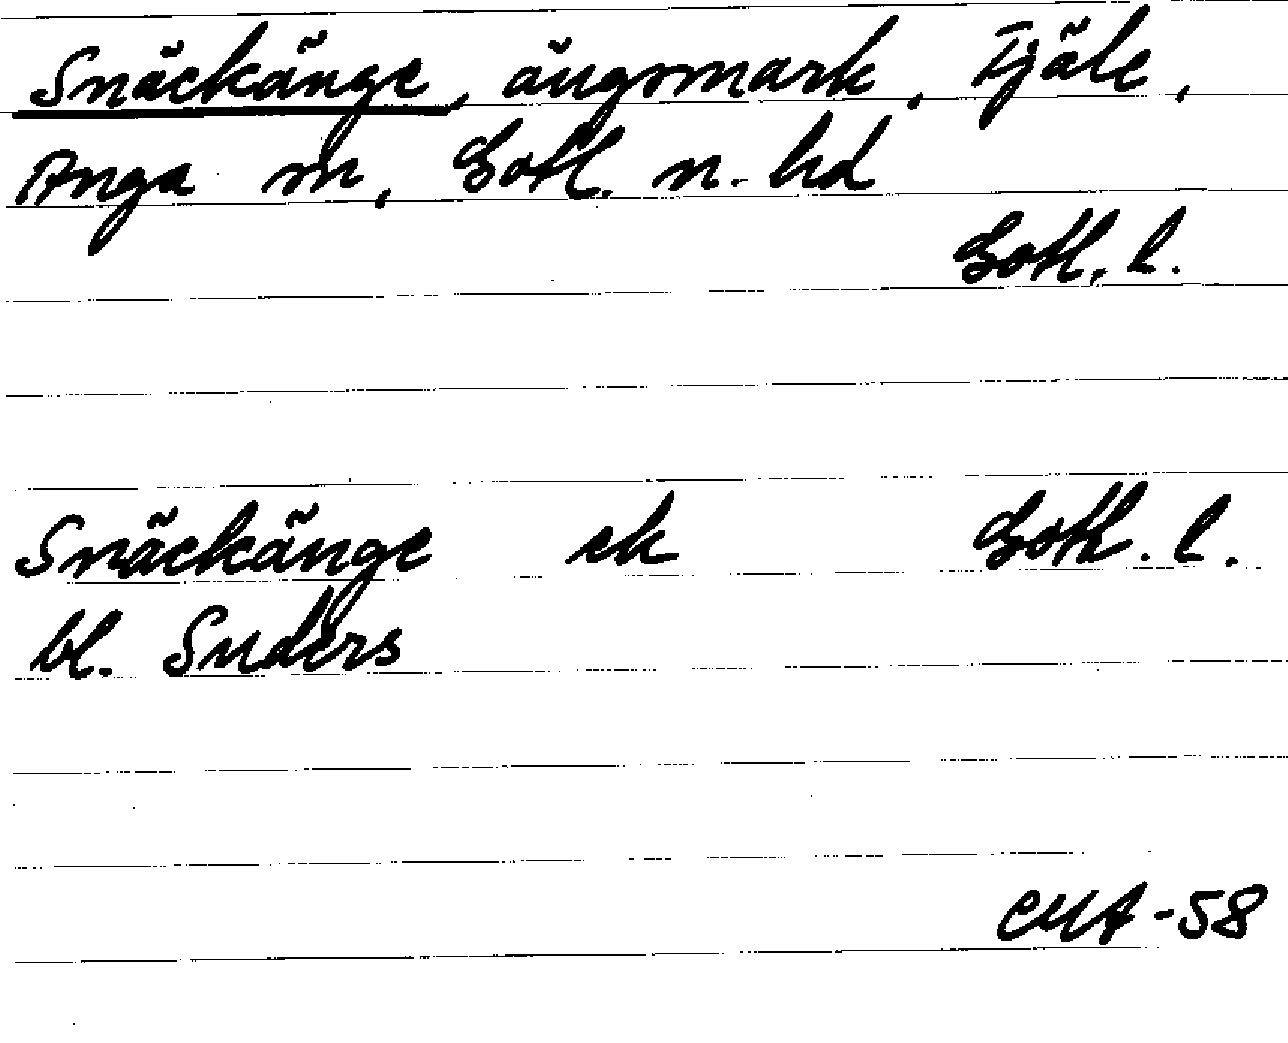 Snäckänge, ängsmark, Tjäle,
Anga sn, Gotl. n. hd
Gotl. l.
Snäckänge ek Gotl. l.
bl. Suders
CMA-58